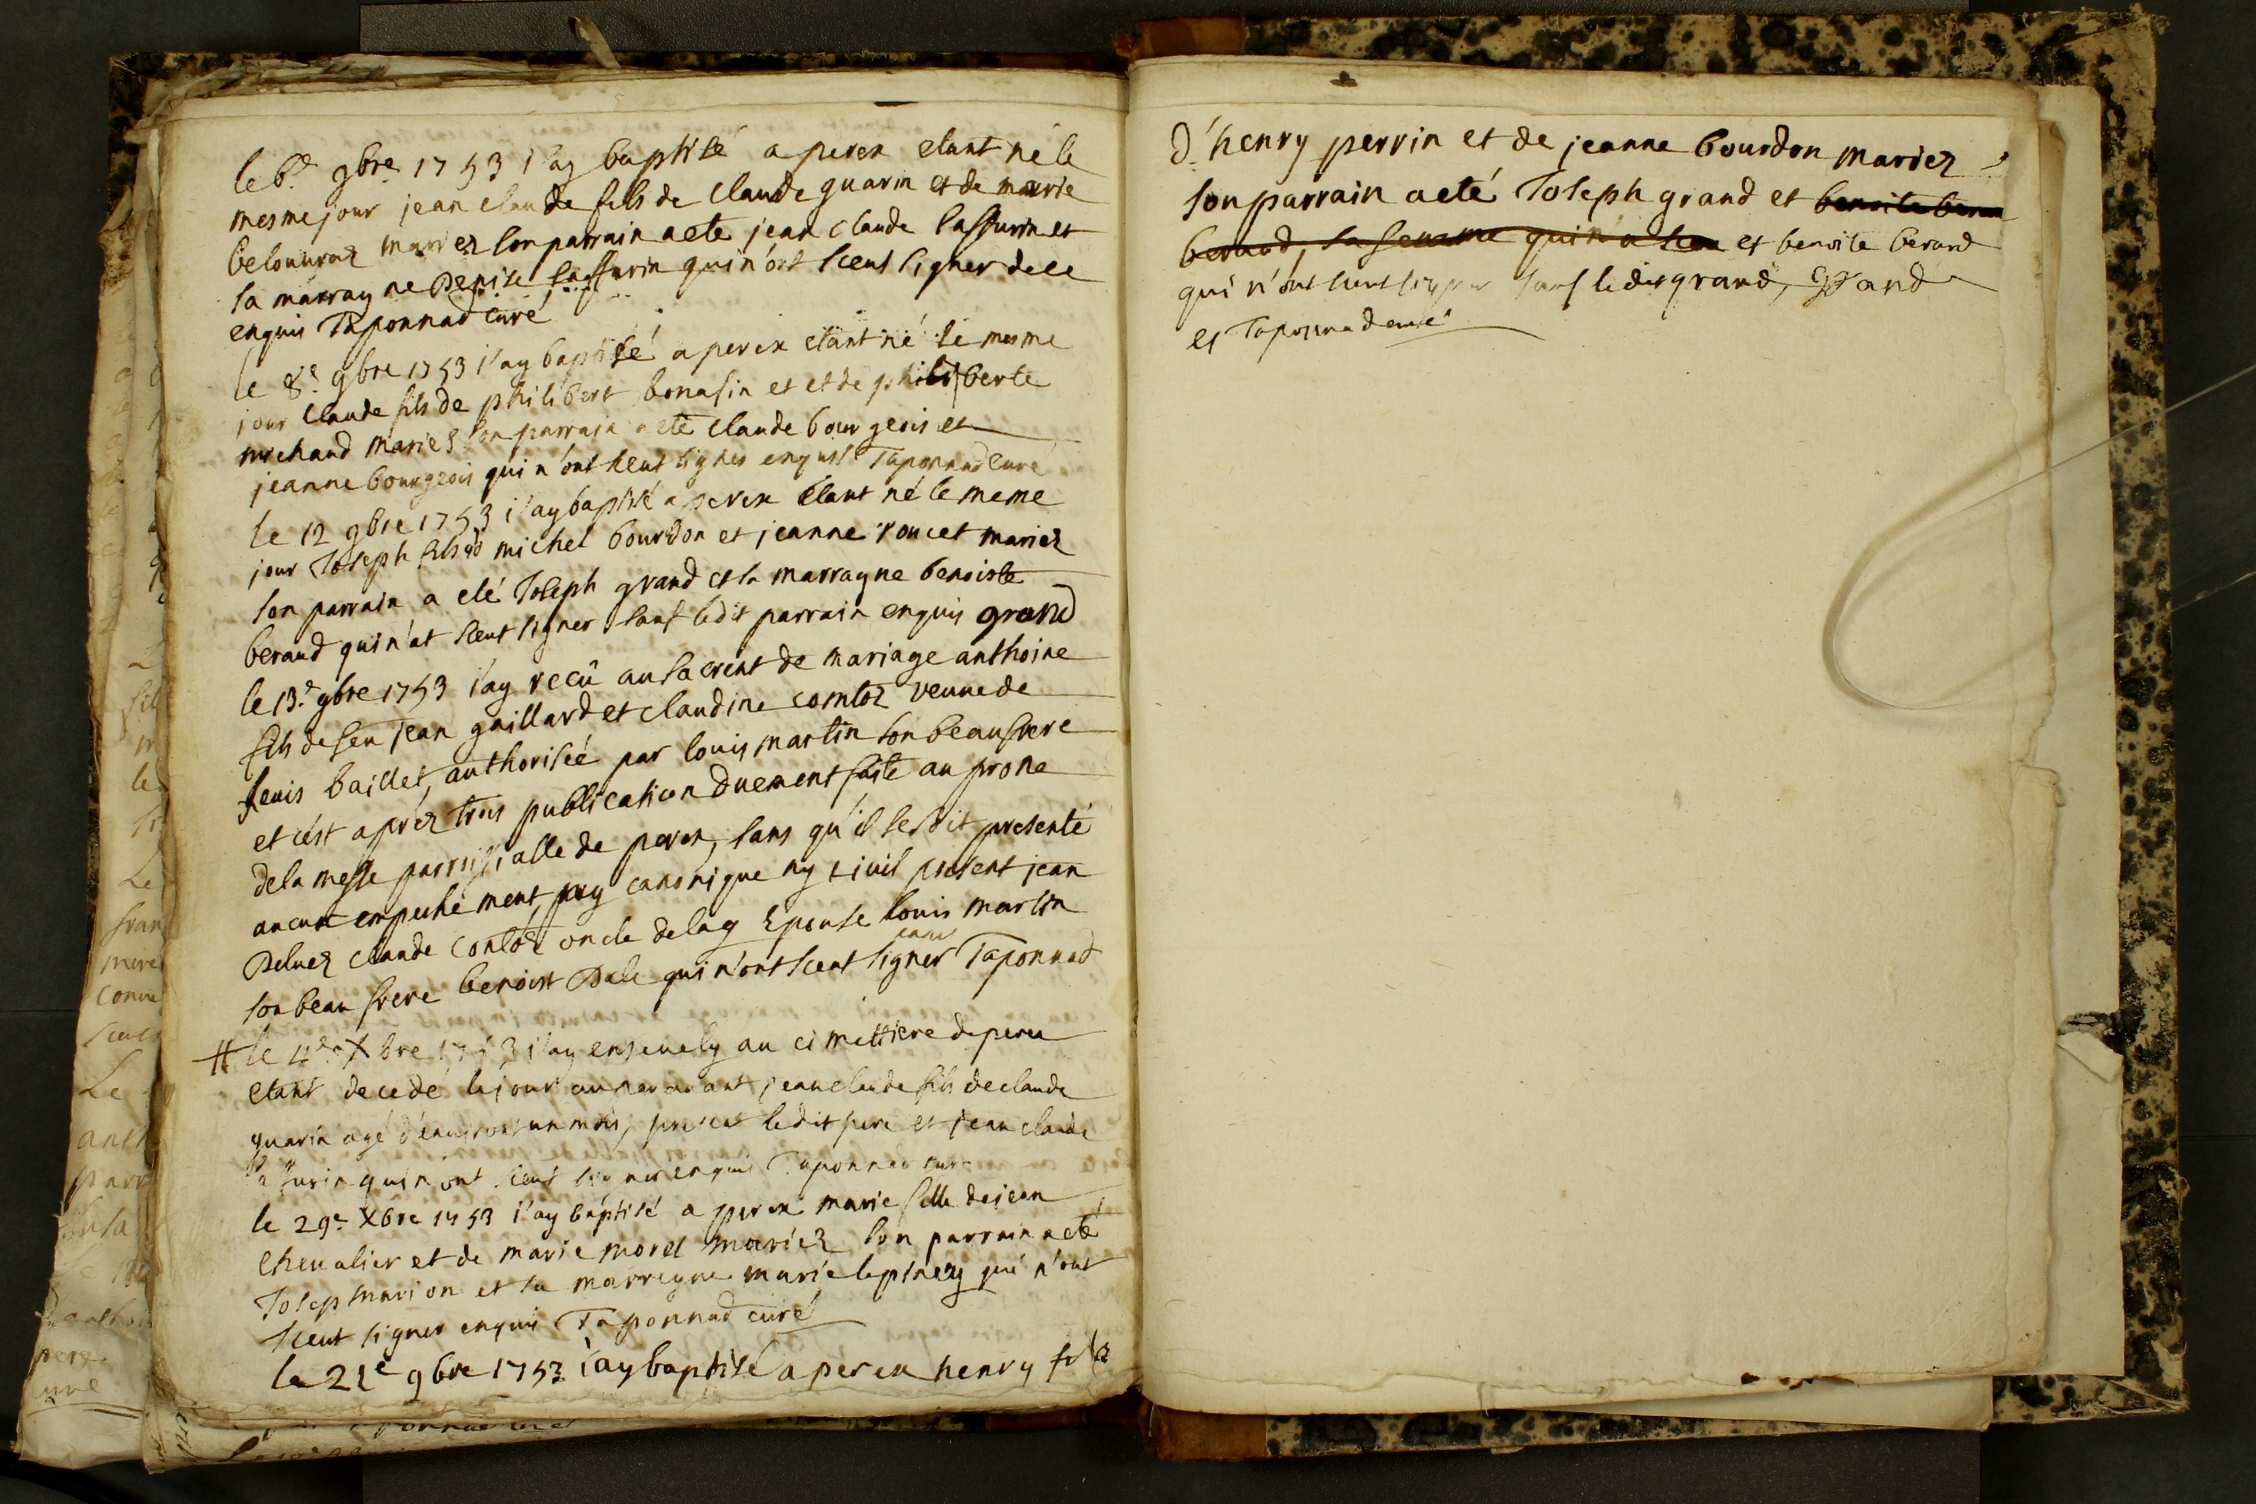 le 6e 9bre 1753 i'ay baptisé a perex etant né le
mesme jour jean claude fils de claude guarin et de marie
belouuraz mariez son parrain a ete jean claude laffurin et
sa marrayne Denise laffurin qui n'ont sceut signer de ce
enquis Taponnad curé
le 8e 9bre 1753 i'ay baptisé a perex etant né le mesme
jour claude fils de philibert bonasin et et de philiberte
michaud mariez son parrain a eté claude bourgeois et
jeanne bourgeois qui n'ont sceut signer enquis Taponnad curé
le 12 9bre 1753 i'ay baptisé a perex étant né le meme
jour Joseph fils de michel bourdon et jeanne poncet mariez
son parrain a eté Joseph grand et sa marrayne benoiste
beraud qui n'at sceut signer sauf ledit parrain enquis grand
le 13e 9bre 1753 i'ay recû au sacrent de mariage anthoine
fils de feu jean gaillard et claudine comtoz veuue de
denis baillet, authorisée par louis martin son beaufrere
et cest aprez trois publication duement faite au prone
de la messe parroissialle de perex, sans qu'il se soit presenté
aucun empeche ment, ny canonique ny civil present jean
Deluez claude contoz oncle de la q Epouse louis martin
son beau frere benoist Dale qui n'ont sceut signer Taponnad
curé
# le 4e Xbre 1753 i'ay enseuely au cimettiere de perex
etant decedé le jour auparauant jean claude fils de claude
guarin agé d'enuiron un mois, present ledit pere et jean claude
laffurin qui n'ont sceut signer enquis Taponnad curé
le 29e Xbre 1753 i'ay baptisé a perex marie fille de jean
cheualier et de marie morel mariez son parrain a eté
Josep marion et sa marreyne marie lepiney qui n'ont
sceut signer enquis Taponnad curé
le 21e 9bre 1753 i'ay baptisé a perex henry fils
d'henry perrin et de jeanne bourdon mariez
son parrain a eté Joseph grand et benoite berau
beraud, sa femme qui n'a sceu et benoite berand
qui n'ont sceut signer sauf ledit grand, Grand
et Taponnad curé